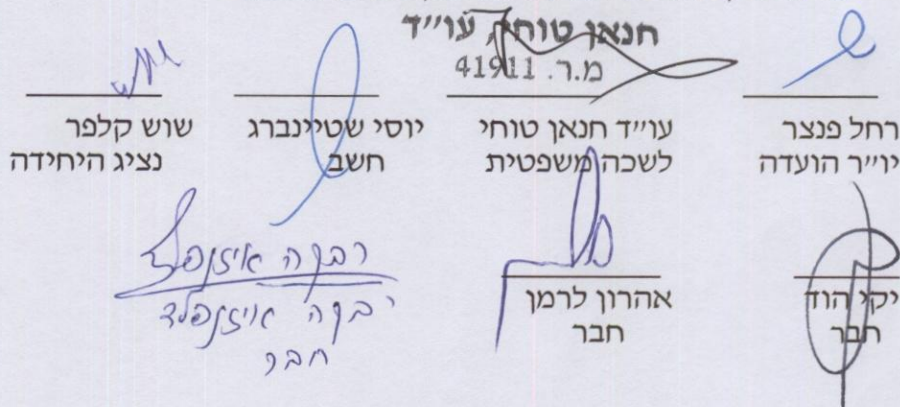 חנאן טוחי, עו"ד
מ.ר. 41911
רחל פנצר
יו"ר הועדה
עו"ד חנאן טוחי
לשכה משפטית
יוסי שטיינברג
חשב
שוש קלפר
נציג היחידה
יקי הוד
חבר
אהרון לרמן
חבר
רבקה איזנפלד
רבקה איזנפלד
חבר